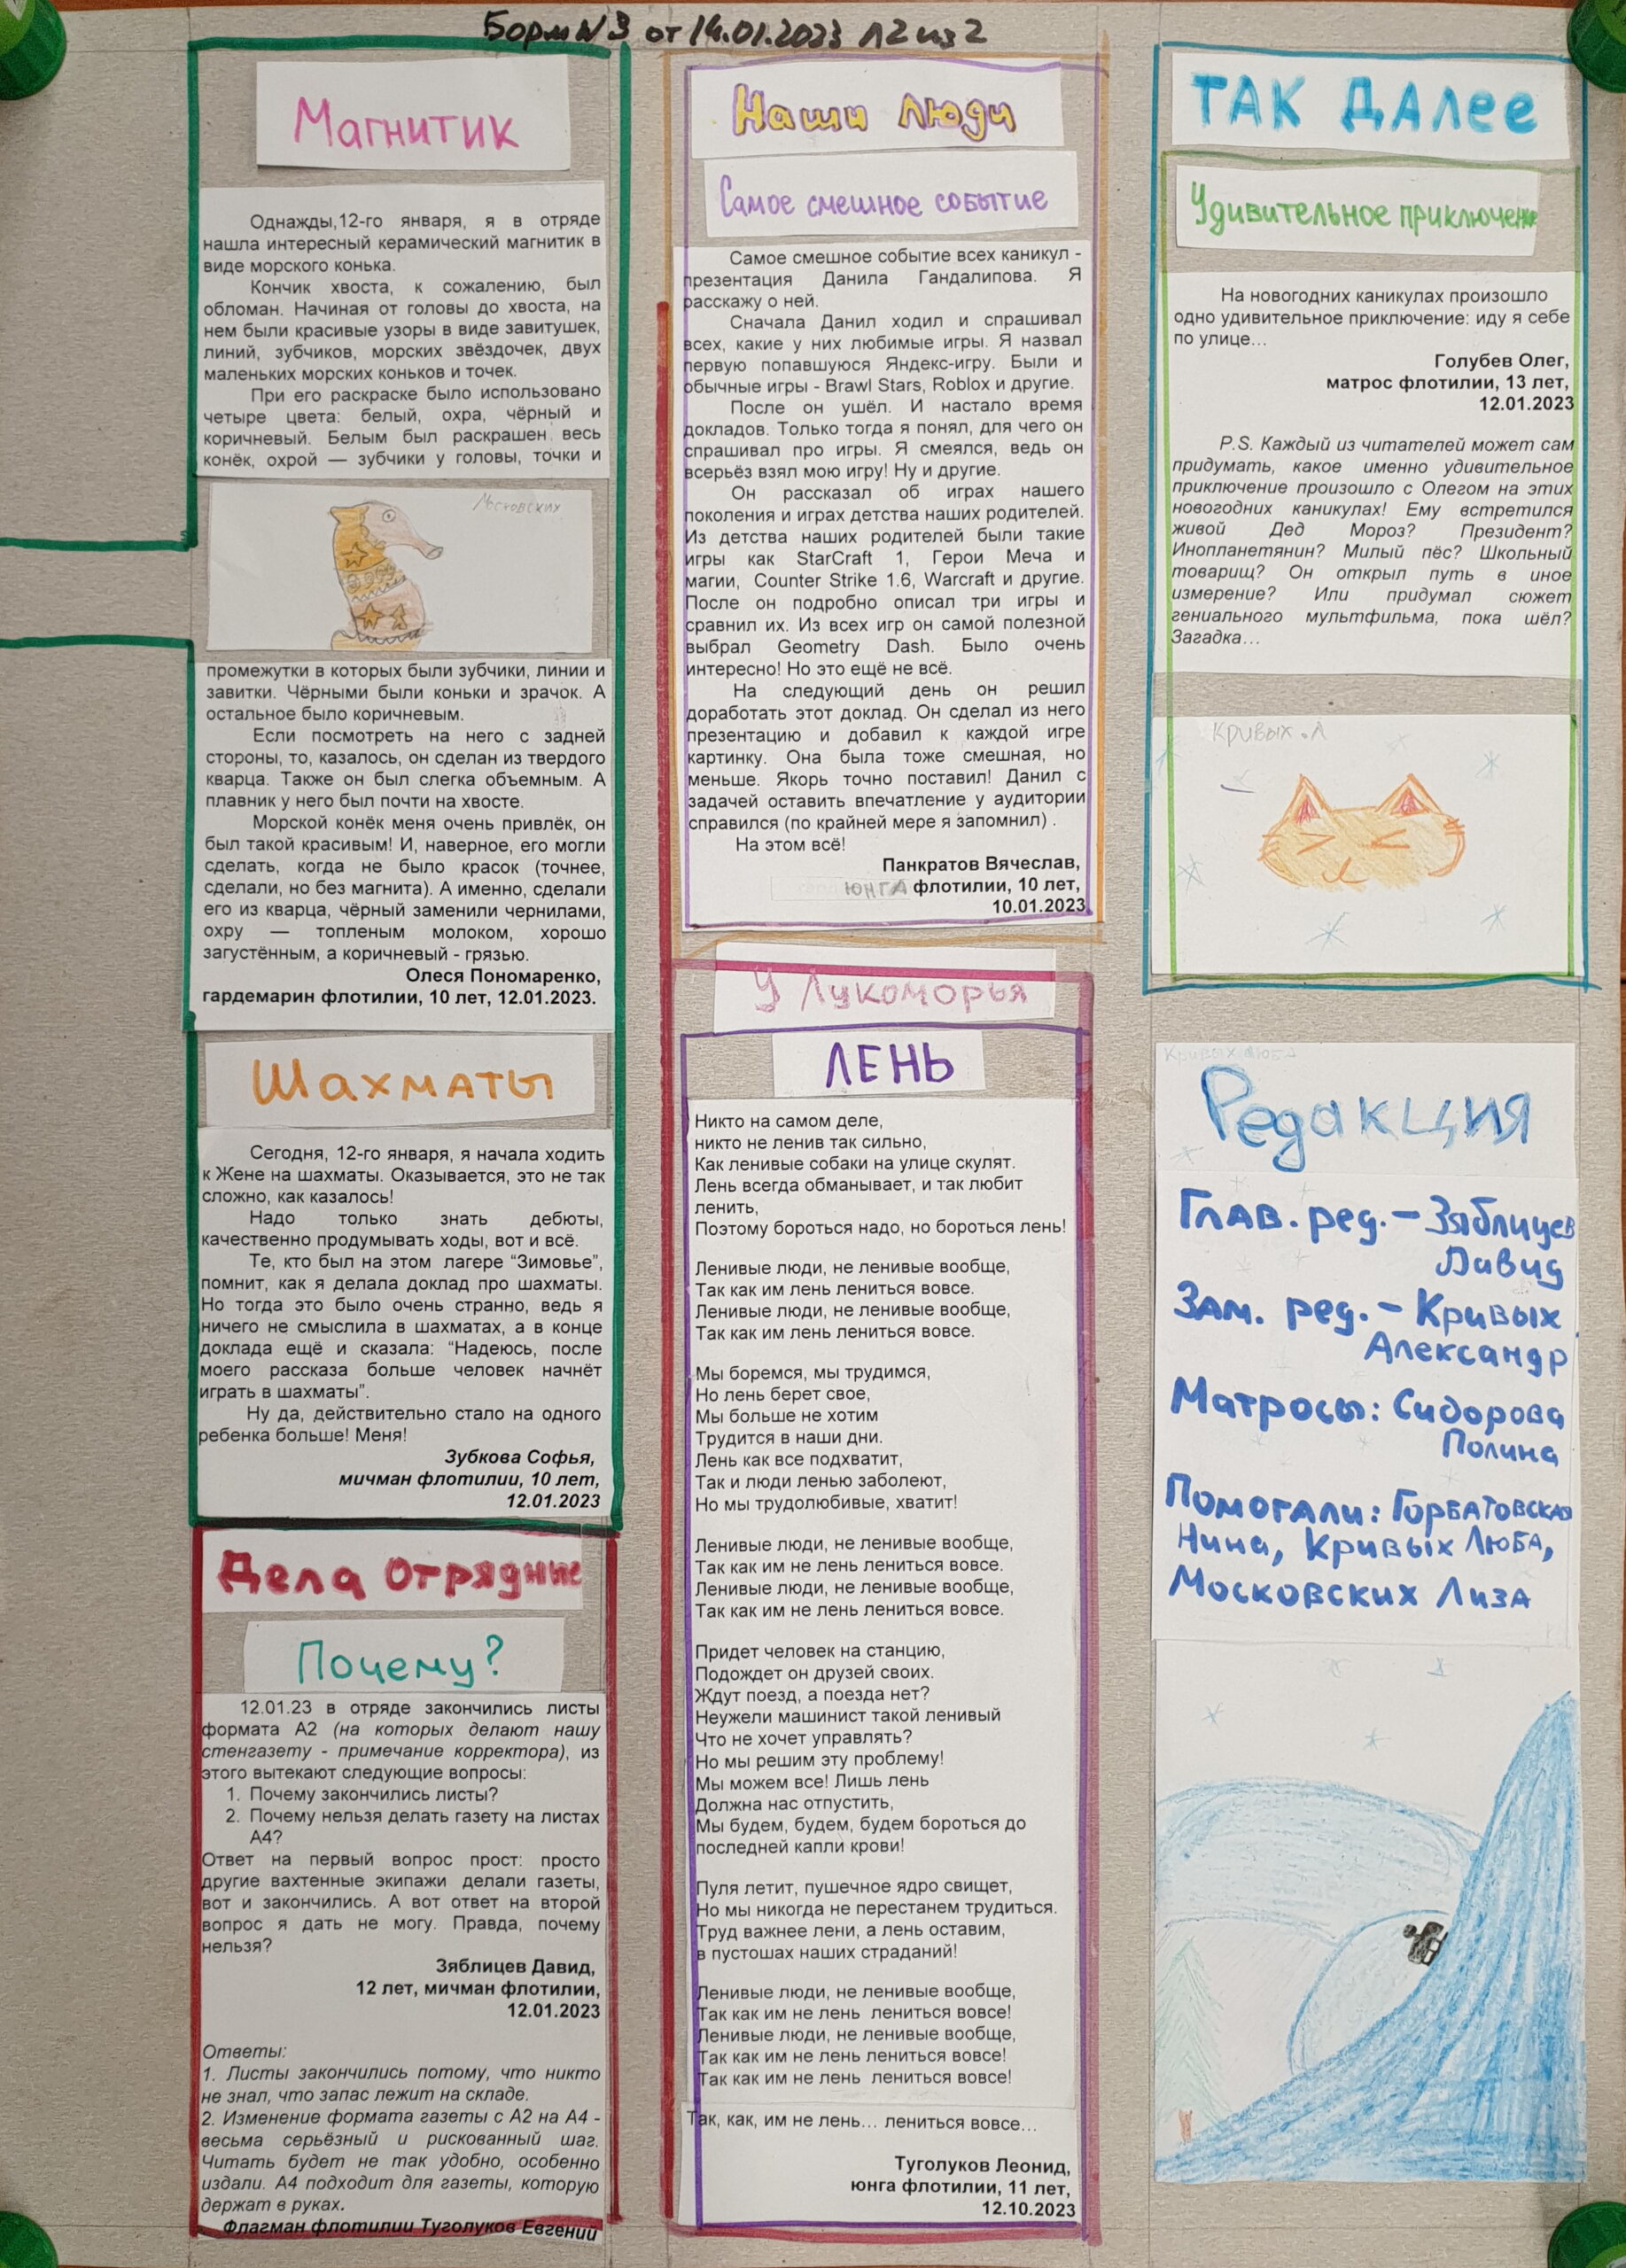 Борт N3 от 14.01.2023 Л2 из 2
Магнитик
Однажды,12-го января, я в отряде
нашла интересный керамический магнитик в
виде морского конька.
Кончик хвоста, к сожалению, был
обломан. Начиная от головы до хвоста, на
нем были красивые узоры в виде завитушек,
линий, зубчиков, морских звёздочек, двух
маленьких морских коньков и точек.
При его раскраске было использовано
четыре цвета: белый, охра, чёрный и
коричневый. Белым был раскрашен весь
конёк, охрой — зубчики у головы, точки и
Московских
промежутки в которых были зубчики, линии и
завитки. Чёрными были коньки и зрачок. А
остальное было коричневым.
Если посмотреть на него с задней
стороны, то, казалось, он сделан из твердого
кварца. Также он был слегка объемным. А
плавник у него был почти на хвосте.
Морской конёк меня очень привлёк, он
был такой красивым! И, наверное, его могли
сделать, когда не было красок (точнее,
сделали, но без магнита). А именно, сделали
его из кварца, чёрный заменили чернилами,
охру — топленым молоком, хорошо
загустённым, а коричневый - грязью.
Олеся Пономаренко,
гардемарин флотилии, 10 лет, 12.01.2023.
Шахматы
Сегодня, 12-го января, я начала ходить
к Жене на шахматы. Оказывается, это не так
сложно, как казалось!
Надо только знать дебюты,
качественно продумывать ходы, вот и всё.
Те, кто был на этом лагере “Зимовье”,
помнит, как я делала доклад про шахматы.
Но тогда это было очень странно, ведь я
ничего не смыслила в шахматах, а в конце
доклада ещё и сказала: “Надеюсь, после
моего рассказа больше человек начнёт
играть в шахматы”.
Ну да, действительно стало на одного
ребенка больше! Меня!
Зубкова Софья,
мичман флотилии, 10 лет,
12.01.2023
Дела отрядные
Почему?
12.01.23 в отряде закончились листы
формата А2 (на которых делают нашу
стенгазету - примечание корректора), из
этого вытекают следующие вопросы:
1. Почему закончились листы?
2. Почему нельзя делать газету на листах
А4?
Ответ на первый вопрос прост: просто
другие вахтенные экипажи делали газеты,
вот и закончились. А вот ответ на второй
вопрос я дать не могу. Правда, почему
нельзя?
Зяблицев Давид,
12 лет, мичман флотилии,
12.01.2023
Ответы:
1. Листы закончились потому, что никто
не знал, что запас лежит на складе.
2. Изменение формата газеты с А2 на А4 -
весьма серьёзный и рискованный шаг.
Читать будет не так удобно, особенно
издали. А4 подходит для газеты, которую
держат в руках.
Флагман флотилии Туголуков Евгений
Наши люди
Самое смешное событие
Самое смешное событие всех каникул -
презентация Данила Гандалипова. Я
расскажу о ней.
Сначала Данил ходил и спрашивал
всех, какие у них любимые игры. Я назвал
первую попавшуюся Яндекс-игру. Были и
обычные игры - Brawl Stars, Roblox и другие.
После он ушёл. И настало время
докладов. Только тогда я понял, для чего он
спрашивал про игры. Я смеялся, ведь он
всерьёз взял мою игру! Ну и другие.
Он рассказал об играх нашего
поколения и играх детства наших родителей.
Из детства наших родителей были такие
игры как StarCraft 1, Герои Меча и
магии, Counter Strike 1.6, Warcraft и другие.
После он подробно описал три игры и
сравнил их. Из всех игр он самой полезной
выбрал Geometry Dash. Было очень
интересно! Но это ещё не всё.
На следующий день он решил
доработать этот доклад. Он сделал из него
презентацию и добавил к каждой игре
картинку. Она была тоже смешная, но
меньше. Якорь точно поставил! Данил с
задачей оставить впечатление у аудитории
справился (по крайней мере я запомнил) .
На этом всё!
Панкратов Вячеслав,
юнга флотилии, 10 лет,
10.01.2023
У Лукоморья
ЛЕНЬ
Никто на самом деле,
никто не ленив так сильно,
Как ленивые собаки на улице скулят.
Лень всегда обманывает, и так любит
ленить,
Поэтому бороться надо, но бороться лень!
Ленивые люди, не ленивые вообще,
Так как им лень лениться вовсе.
Ленивые люди, не ленивые вообще,
Так как им лень лениться вовсе.
Мы боремся, мы трудимся,
Но лень берет свое,
Мы больше не хотим
Трудится в наши дни.
Лень как все подхватит,
Так и люди ленью заболеют,
Но мы трудолюбивые, хватит!
Ленивые люди, не ленивые вообще,
Так как им не лень лениться вовсе.
Ленивые люди, не ленивые вообще,
Так как им не лень лениться вовсе.
Придет человек на станцию,
Подождет он друзей своих.
Ждут поезд, а поезда нет?
Неужели машинист такой ленивый
Что не хочет управлять?
Но мы решим эту проблему!
Мы можем все! Лишь лень
Должна нас отпустить,
Мы будем, будем, будем бороться до
последней капли крови!
Пуля летит, пушечное ядро свищет,
Но мы никогда не перестанем трудиться.
Труд важнее лени, а лень оставим,
в пустошах наших страданий!
Ленивые люди, не ленивые вообще,
Так как им не лень лениться вовсе!
Ленивые люди, не ленивые вообще,
Так как им не лень лениться вовсе!
Так как им не лень лениться вовсе!
Так, как, им не лень... лениться вовсе...
Туголуков Леонид,
юнга флотилии, 11 лет,
12.10.2023
ТАК ДАЛее
Удивительное приключение
На новогодних каникулах произошло
одно удивительное приключение: иду я себе
по улице...
Голубев Олег,
матрос флотилии, 13 лет,
12.01.2023
P.S. Каждый из читателей может сам
придумать, какое именно удивительное
приключение произошло с Олегом на этих
новогодних каникулах! Ему встретился
живой Дед Мороз? Президент?
Инопланетянин? Милый пёс? Школьный
товарищ? Он открыл путь в иное
измерение? Или придумал сюжет
гениального мультфильма, пока шёл?
Загадка...
Кривых.А
Кривых Люба
Редакция
Глав. ред. - Зяблицев
Давид
Зам. ред. - Кривых
Александр
Матросы: Сидорова
Полина
Помогали: Горбатовская
Нина, Кривых Люба,
Московских Лиза